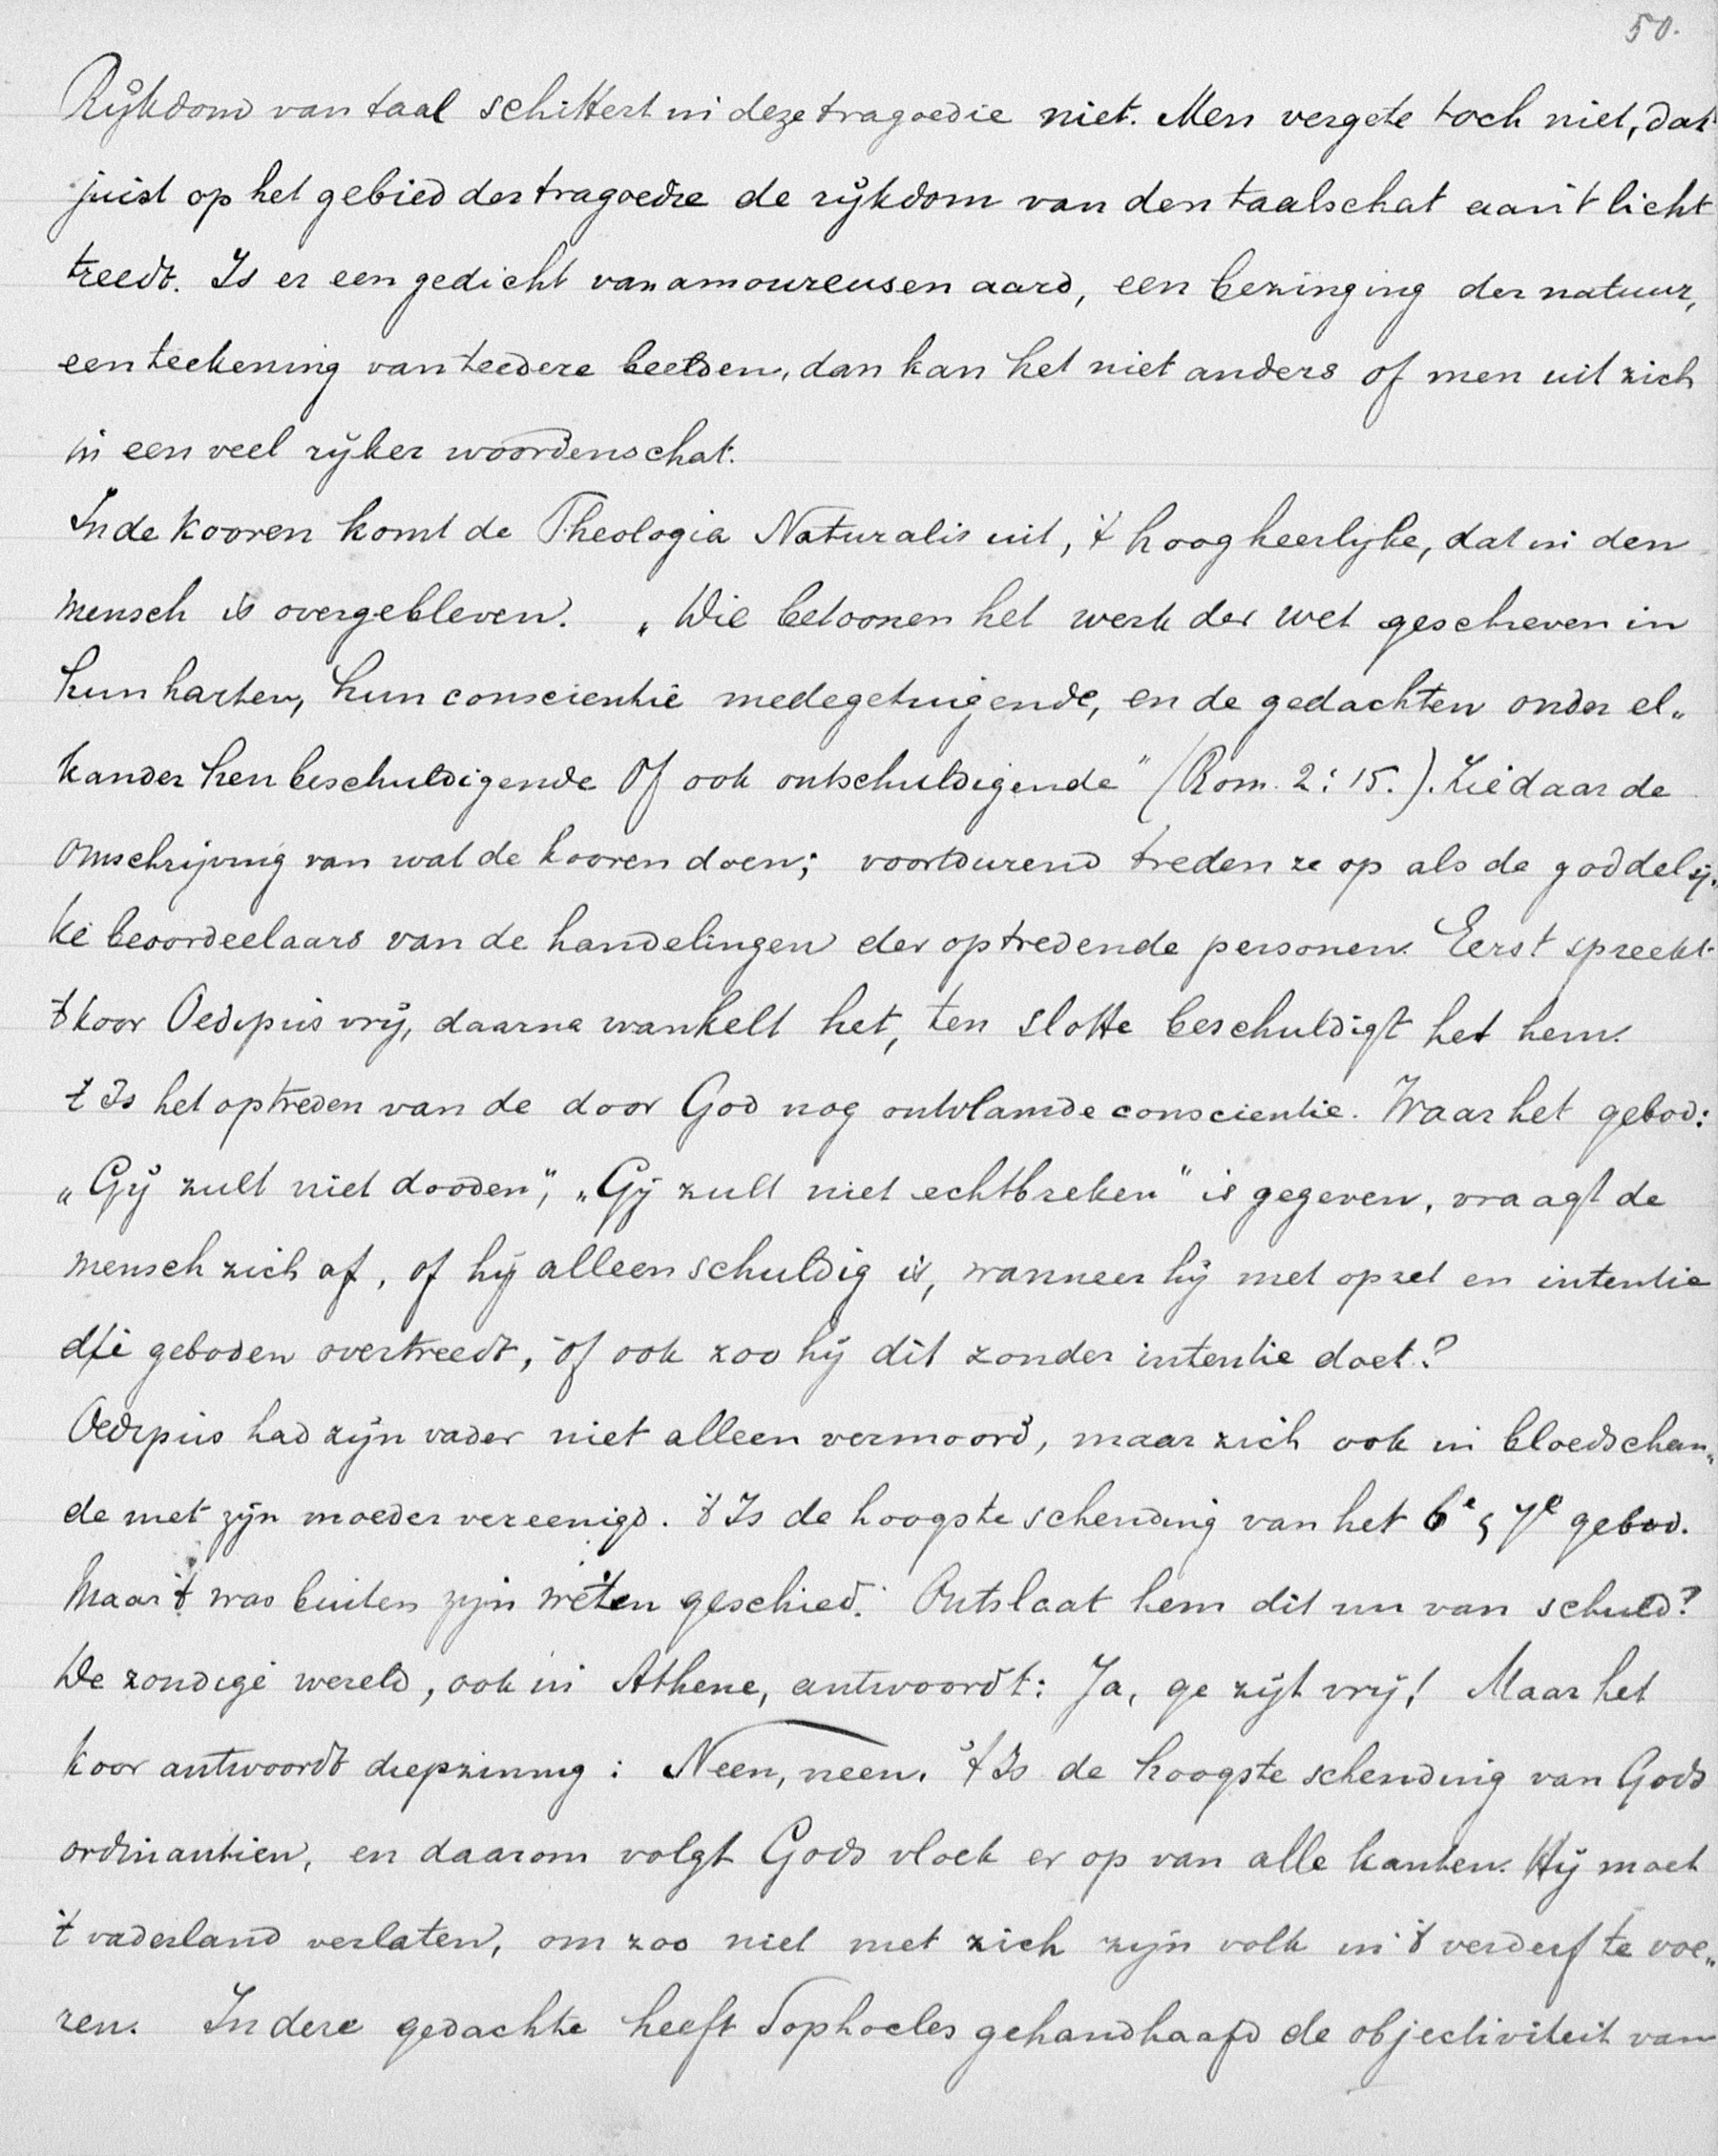 50.
Rijkdom van taal schittert in deze tragoedie niet. Men vergete toch niet, dat
juist op het gebied der tragoedie de rijkdom van den taalschat aan 't licht
treedt. Is er een gedicht van amoureusen aard, een bezinging der natuur,
een teekening van teedere beelden, dan kan het niet anders of men uit zich
in een veel rijker woordenschat.
In de kooren komt de Theologia Naturalis uit, 't hoogheerlijke, dat in den
mensch is overgebleven. „Wie betoonen het werk der wet geschreven in
hun harten, hun conscientie medegetuigende, en de gedachten onder el„
kander hen beschuldigende of ook ontschuldigende" (Rom. 2:15.). Ziedaar de
omschrijving van wat de kooren doen; voortdurend treden ze op als de goddelij„
ke beoordeelaars van de handelingen der optredende personen. Eerst spreekt
't koor Oedipus vrij, daarna wankelt het, ten slotte beschuldigt het hem.
't Is het optreden van de door God nog ontvlamde conscientie. Waar het gebod:
„Gij zult niet dooden", „Gij zult niet echtbreken" is gegeven, vraagt de
mensch zich af, of hij alleen schuldig is, wanneer hij met opzet en intentie
die geboden overtreedt, óf ook zoo hij dit zonder intentie doet?
Oedipus had zijn vader niet alleen vermoord, maar zich ook in bloedschan„
de met zijn moeder vereenigd. 't Is de hoogste schending van het 6e & 7e gebod.
Maar 't was buiten zijn weten geschied. Ontslaat hem dit nu van schuld?
De zondige wereld, ook in Athene, antwoordt: Ja, ge zijt vrij! Maar het
koor antwoordt diepzinnig: Neen, neen. 't Is de hoogste schending van Gods
ordinantien, en daarom volgt Gods vloek er op van alle kanten. Hij moet
't vaderland verlaten, om zoo niet met zich zijn volk in 't verderf te voe„
ren. In deze gedachte heeft Sophocles gehandhaafd de objectiviteit van